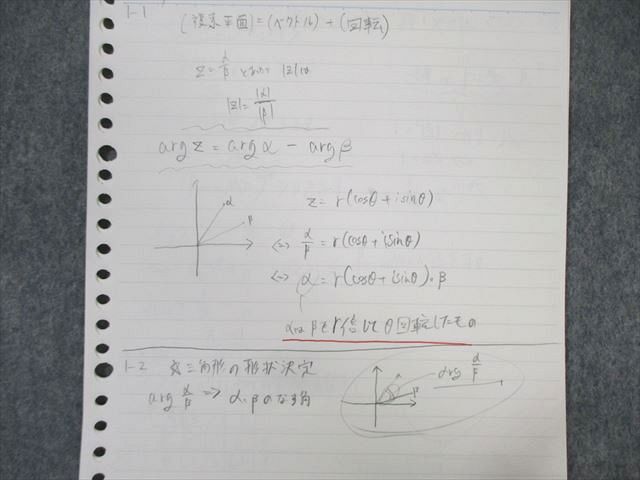 1-1
(複素平面) = (ベクトル) + (回転)
z = α/β とおく |z|は
|z| = |α|/|β|
arg z = arg α − arg β
α
β
z = r(cosθ + i sinθ)
⇔ α/β = r(cosθ + i sinθ)
⇔ α = r(cosθ + i sinθ)・β
αはβをr倍してθ回転したもの
1-2 三角形の形状決定
arg α/β ⇒ α、βのなす角
α
β
arg α/β